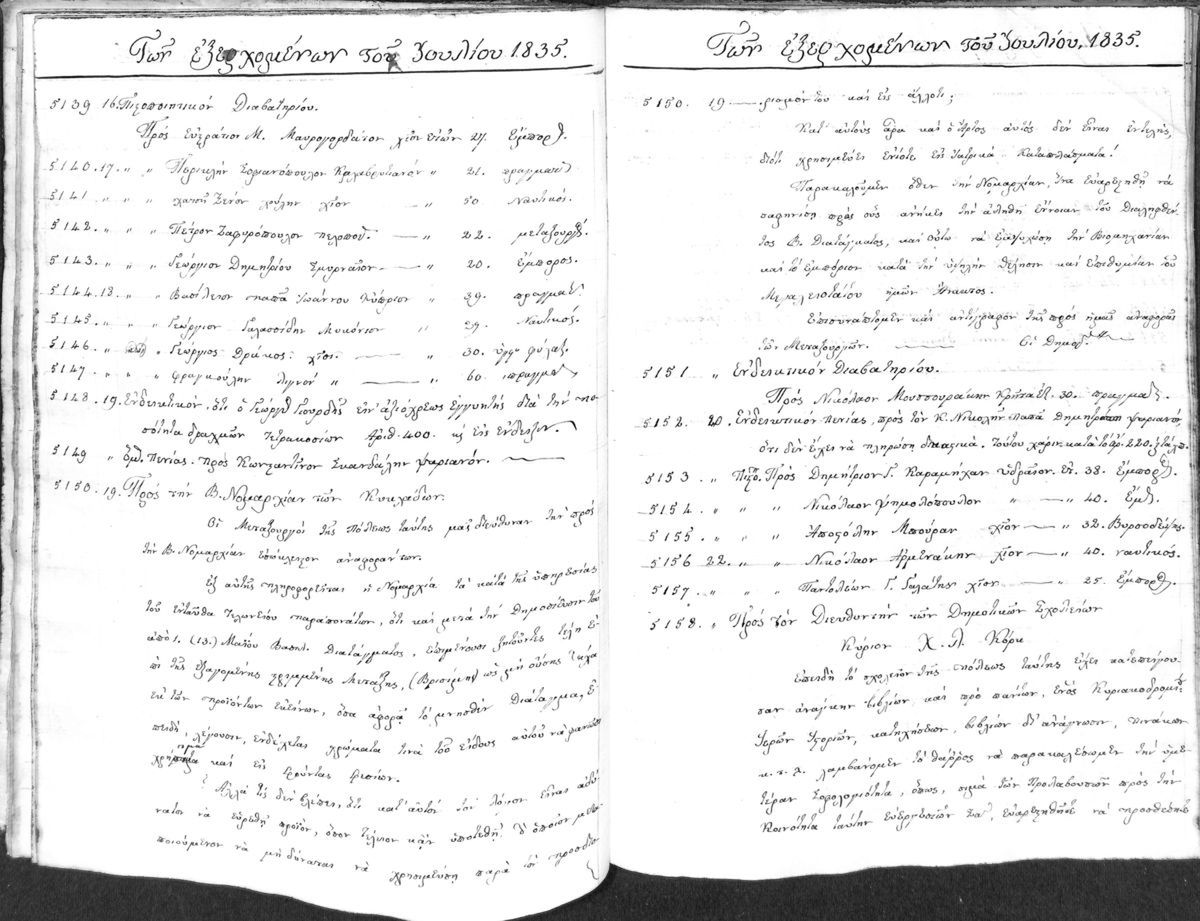 Τῶν ἐξερχομένων τοῦ Ἰουλίου 1835.
5139 16. Πιςοποιητικὸν Διαβατηρίου.
Πρὸς Εὐςράτιον Μ. Μαυρογορδάτον χῖον ἐτῶν 24. Ἔμπορ.
5140. 17. " " Περικλῆν Σοφιανόπουλον Καλαβρυτιανόν " 21. πραγματ.
5141 " " " χον " 50. Ναυτικός.
5142. " " " Πέτρον Ζαφυρόπουλον πελοπον. " 22. μεταξουργ.
5143. " " " Γεώργιον Δημητρίου Σμυρναῖον " 20. ἔμπορος.
5144. 18. " " Βασίλειον παπᾶ Ἰωάννου Κύπριον " 39. πραγματ.
5145 " " " Γεώργιον Γαλασσίδην Μυκόνιον " 29. Ναυτικός.
5146. " " Γεώργιος Δράκος χῖος. " 30. φύλαξ.
5147 " " " φραγκούλην " 60. πραγματ.
5148. 19. Ἐνδεικτικὸν, ὅτι ὁ Γεώργ. εἶν' ἀξιόχρεως ἐγγυητὴς διὰ τὴν πο-
σότητα δραχμῶν τετρακοσίων Ἀριθ. 400. εἰς ἔνδειξιν.
5149 " ὅμ. πενίας. πρὸς Κωνςαντῖνον Σκανδάλην ψαριανόν.
5150. 19. Πρὸς τὴν Β. Νομαρχίαν τῶν Κυκλάδων.
Οἱ Μεταξουργοὶ τῆς Πόλεως ταύτης μᾶς διεύθυναν τὴν πρὸς
τὴν Β. Νομαρχίαν ἐσώκλειςον ἀναφοράν των.
Ἐξ αὐτῆς πληροφορεῖται ἡ Νομαρχία τὰ κατὰ τῆς ὑπηρεσίας
τοῦ ἐνταῦθα Τελωνείου παράπονά των, ὅτι καὶ μετὰ τὴν δημοσίευσιν τοῦ
ἀπὸ 1. (13.) Μαΐου Βασιλ. Διατάγματος, ἐπιμένουσι ζητοῦντες τέλη ἐ-
πὶ τῆς ἐξαγομένης Μετάξης, ὡς μὴ οὔσης τάχα
ἐκ τῶν προϊόντων ἐκείνων, ὅσα ἀφορᾷ τὸ μνησθὲν Διάταγμα, ἐ-
πειδὴ, λέγουσιν, ἐνδέχεται χρώματά τινα τοῦ εἴδους αὐτοῦ νὰ φανῶσι
χρήσιμα καὶ εἰς φεσίων.
Ἀλλὰ τίς δὲν βλέπει, ὅτι κατ' αὐτὸν τὸν λόγον εἶναι ἀδύ-
νατον νὰ εὑρεθῇ προϊὸν, ὅσον τέλειον κἂν ὑποτεθῇ, τὸ ὁποῖον μετα-
ποιούμενον νὰ μὴ δύναται νὰ χρησιμεύσῃ παρὰ τὸν προσδιο-
Τῶν ἐξερχομένων τοῦ Ἰουλίου, 1835.
5150. 19 ρισμόν του καὶ εἰς ἄλλο τι;
Κατ' αὐτοὺς ἄρα καὶ ὁ ἄρτος αὐτὸς δὲν εἶναι ἐντελὴς,
διότι χρησιμεύει ἐνίοτε εἰς ἰατρικὰ καταπλάσματα!
Παρακαλοῦμεν ὅθεν τὴν Νομαρχίαν, ἵνα εὐαρεςηθῇ νὰ
σαφηνίσῃ πρὸς οὓς ἀνήκει τὴν ἀληθῆ ἔννοιαν τοῦ διαληφθέν-
τος Β. Διατάγματος, καὶ οὕτω νὰ ἐμψυχώσῃ τὴν Βιομηχανίαν
καὶ τὸ Ἐμπόριον κατὰ τὴν ὑψηλὴν θέλησιν καὶ ἐπιθυμίαν τοῦ
Μεγαλειοτάτου ἡμῶν Ἄνακτος.
Ἐπισυνάπτομεν καὶ ἀντίγραφον τῆς πρὸς ἡμᾶς ἀναφορᾶς
τῶν Μεταξουργῶν. Οἱ Δημογ.
5151 " Ἐνδεικτικὸν Διαβατηρίου.
Πρὸς Νικόλαον Μουσσουράκην Κρῆτα ἐτ. 30. πραγματ.
5152. 20. Ἐνδεικτικὸν πενίας, πρὸς τὸν Κ. Νικολῆν παπᾶ Δημητρίου ψαριανὸν,
ὅτι δὲν ἔχει νὰ πληρώσῃ δικαςικά. τούτου χάριν κατὰ τὸ ἄρ. 220.
5153 " Πιςο. Πρὸς Δημήτριον Γ. Καραμήχαν ὑδραῖον. ἐτ. 38. ἔμπορ.
5154. " " " Νικόλαον Ψημολόπουλον " " 40. ἔμπ.
5155 " " " Ἀποςόλην Μπούραν χῖον " 32. Βυρσοδέψης.
5156 22. " " Νικόλαον Ἀρμενάκην χῖον " 40. ναυτικός.
5157 " " " Παντολέων Γ. Γαλάτην χῖον " 25. ἔμπορ.
5158. " Πρὸς τὸν Διευθυντὴν τῶν Δημοτικῶν Σχολείων
Κύριον Χ. Λ. Κόρκ
Ἐπειδὴ τὸ σχολεῖον τῆς πόλεως ταύτης ἔχει κατεπείγου-
σαν ἀνάγκην βιβλίων καὶ πρὸ πάντων, ἑνὸς Κυριακοδρομίου
Ἱερῶν Ἱςοριῶν, κατηχήσεων, βιβλίων δι' ἀνάγνωσιν, πινάκων
κ.τ.λ. λαμβάνομεν τὸ θάρρος νὰ παρακαλέσωμεν τὴν ὑμε-
τέραν Σοφολογιότητα, ὅπως, σιμὰ τῶν προλαβουσῶν πρὸς τὴν
Κοινότητα ταύτην εὐεργεσιῶν σας, εὐαρεςηθῆτε νὰ προσθέσητε